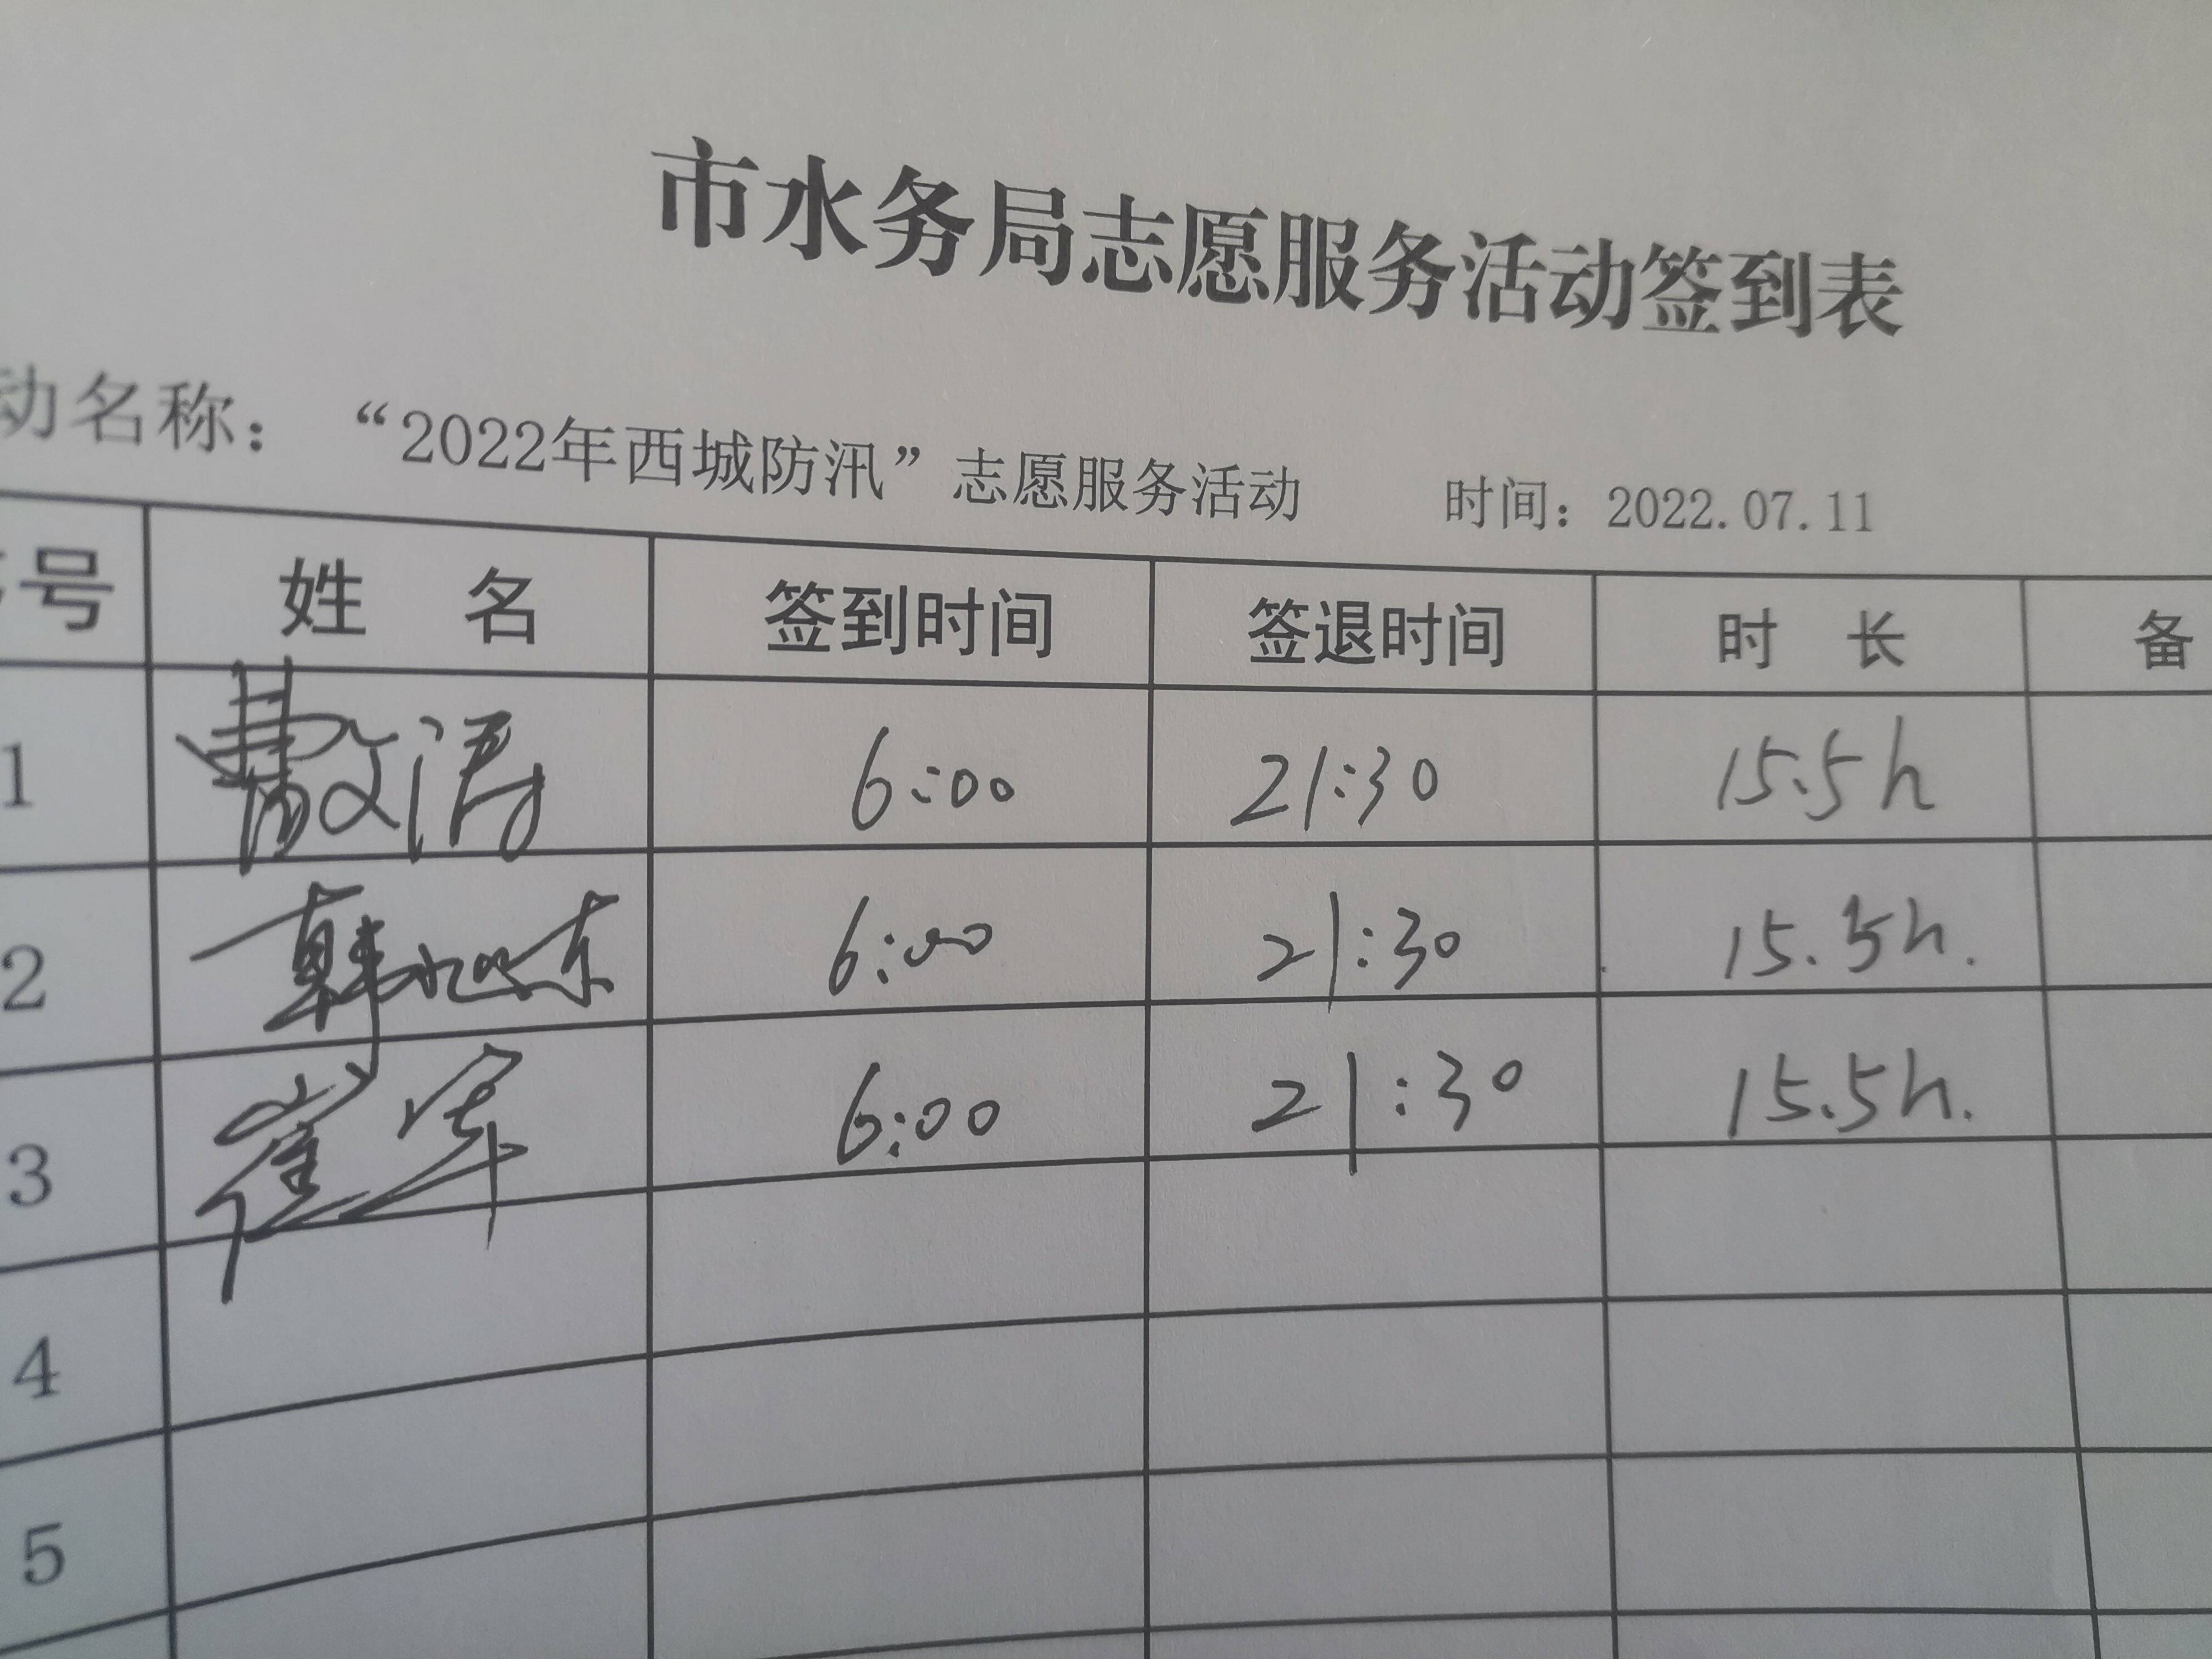 市水务局志愿服务活动签到表
动名称： “2022年西城防汛”志愿服务活动 时间：2022.07.11
号 姓 名 签到时间 签退时间 时 长 备
1 6:00 21:30 15.5h
2 韩旭东 6:00 21:30 15.5h.
3 崔军 6:00 21:30 15.5h.
4
5